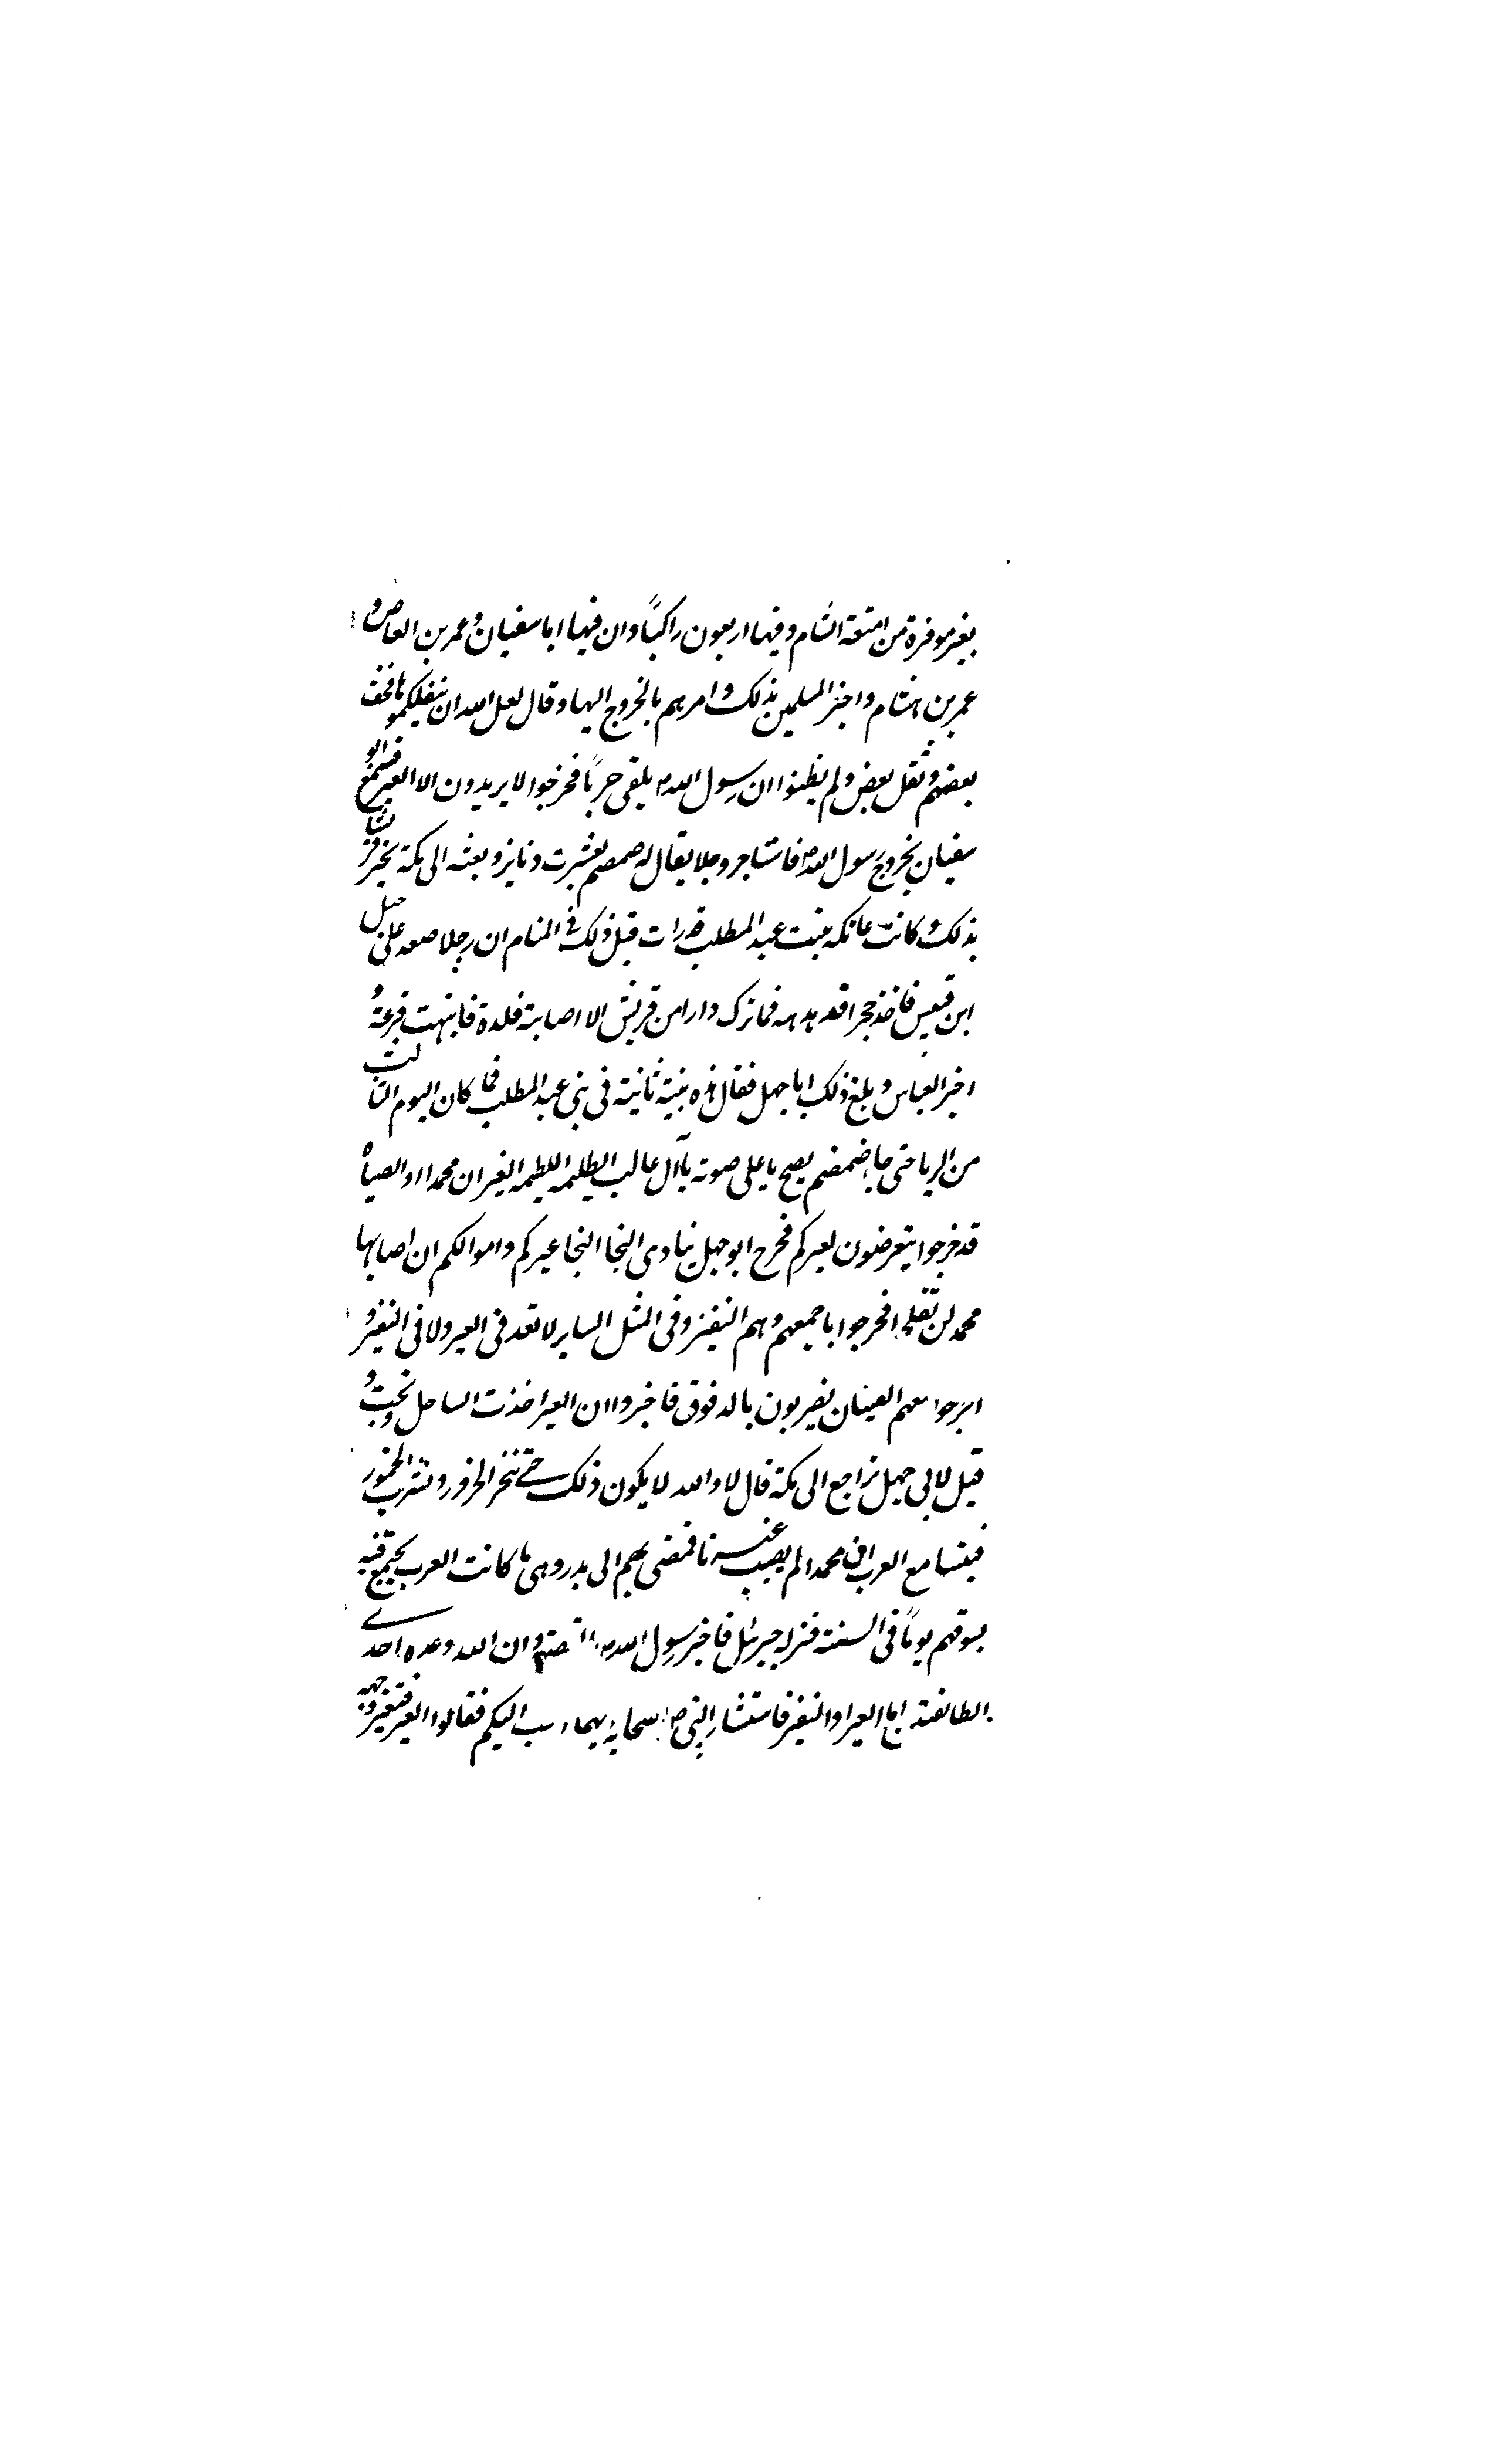 بعير موفرة من امتعة الشام وفيها اربعون راكبًا وان فيها ابا سفيان وعمر بن العاص و
عمر بن هشام واخبر المسلمين بذلك وامرهم بالخروج اليها وقال لعل الله ان ينفلكموها فخف
بعضهم وثقل بعض ولم يظنوا ان رسول الله ص يلقى حربًا فخرجوا لا يريدون الا العير فسمع ابو
سفيان بخروج رسول الله ص فاستاجر رجلا يقال له ضمضم بعشرت دنانير وبعثه الى مكة يخبر قريشا
بذلك وكانت عاتكه بنت عبد المطلب قد رات قبل ذلك في المنام ان رجلا صعد على جبل
ابن قبيس فاخذ حجرا قد هدهه فما ترك دارا من قريش الا اصابته فلدة فانبهت فزعة و
اخبر العباس وبلغ ذلك ابا جهل فقال هذه نبية ثانية في بني عبد المطلب فما كان اليوم الثالث
من الريا حتى جاء ضمضم يصيح باعلى صوته يا آل غالب اللطيمه اللطيمه العير ان محمدا والصباة
قد خرجوا يتعرضون لعيركم فخرج ابو جهل ينادى النجا النجا عيركم واموالكم ان اصابها
محمد لن تفلحوا فخرجوا باجمعهم وهم النفير وفي المثل الساير لا تعد في العير ولا في النفير و
اخرجوا معهم القينان يضربون بالدفوق فاخبروا ان العير اخذت الساحل ونجت و
قيل لابي جهل نراجع الى مكة قال لا والله لا يكون ذلك حتى ننحر الجزور ونشرب الخمور
فيتسامع العرب ان محمدا لم يصب عيرنا فمضى بهم الى بدر وهي ما كانت العرب يجتمع فيه
بسوقهم يومًا في السنة فنزله جبرئيل فاخبر رسول الله ص قصتهم وان الله وعده احدى
الطائفتين اما العير او النفير فاستشار النبي ص اصحابه ايهما احب اليكم فقالوا العير فتغير وجهه